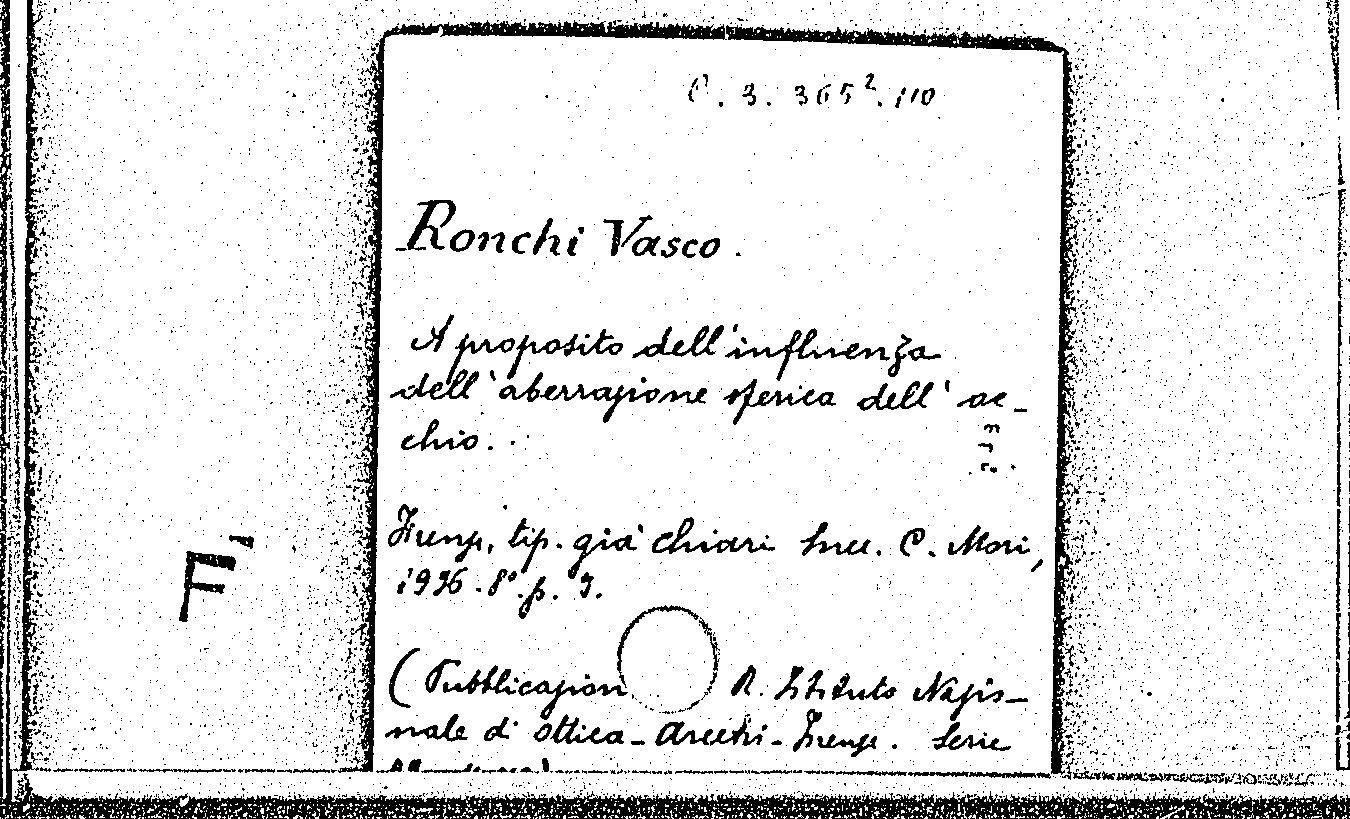 C. 3. 365². 110
Ronchi Vasco.
A proposito dell'influenza
dell'aberrazione sferica dell'oc-
chio.
Firenze, tip. già Chiari Succ. C. Mori,
1936. 8°. p. 9.
(Pubblicazion R. Istituto Nazio-
nale di ottica - Arcetri - Firenze. Serie
F